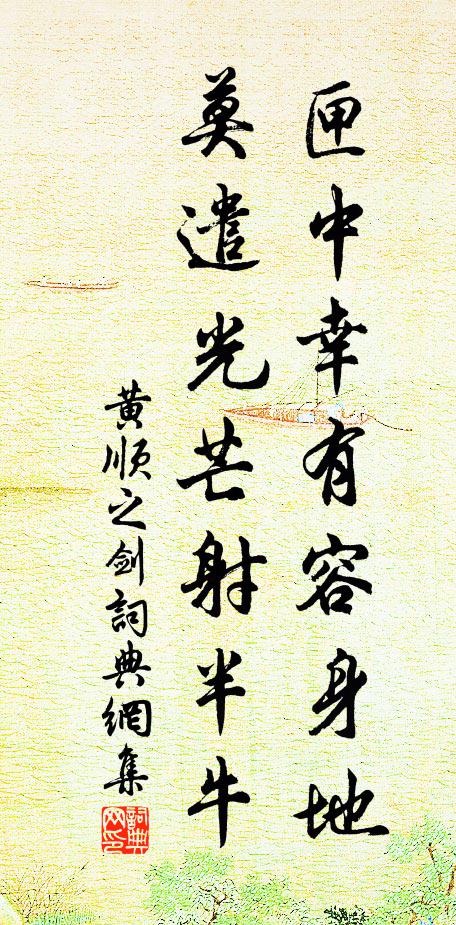 匣中幸有容身地
莫遣光芒射半牛
黄顺之剑詞典網集
詞典网印